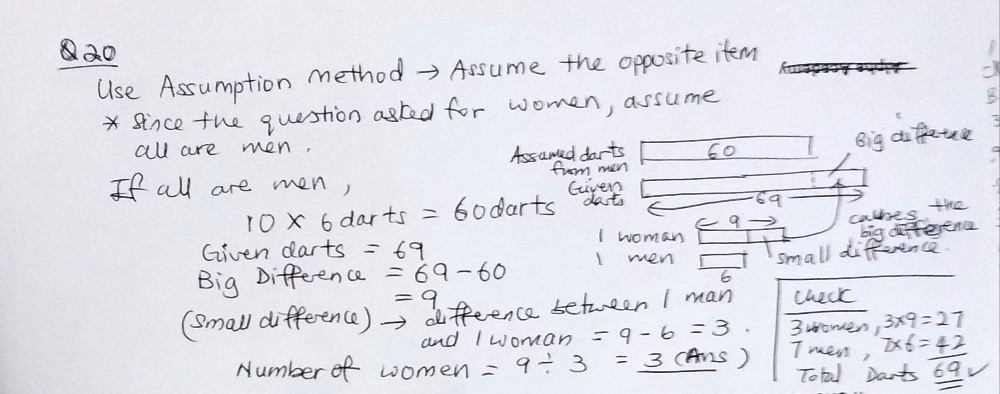 Q20
Use Assumption method → Assume the opposite item
* Since the question asked for women, assume
all are men.
If all are men,
10 × 6 darts = 60 darts
Given darts = 69
Big Difference = 69 - 60
= 9
(Small difference) → difference between 1 man
and 1 woman = 9 - 6 = 3.
Number of women = 9 ÷ 3 = 3 (Ans)
Assumed darts
from men
60
Big difference
Given
darts
69
9
1 woman
1 men
6
causes the
big difference
small difference.
Check
3 women, 3×9=27
7 men, 7×6=42
Total Darts 69 ✓